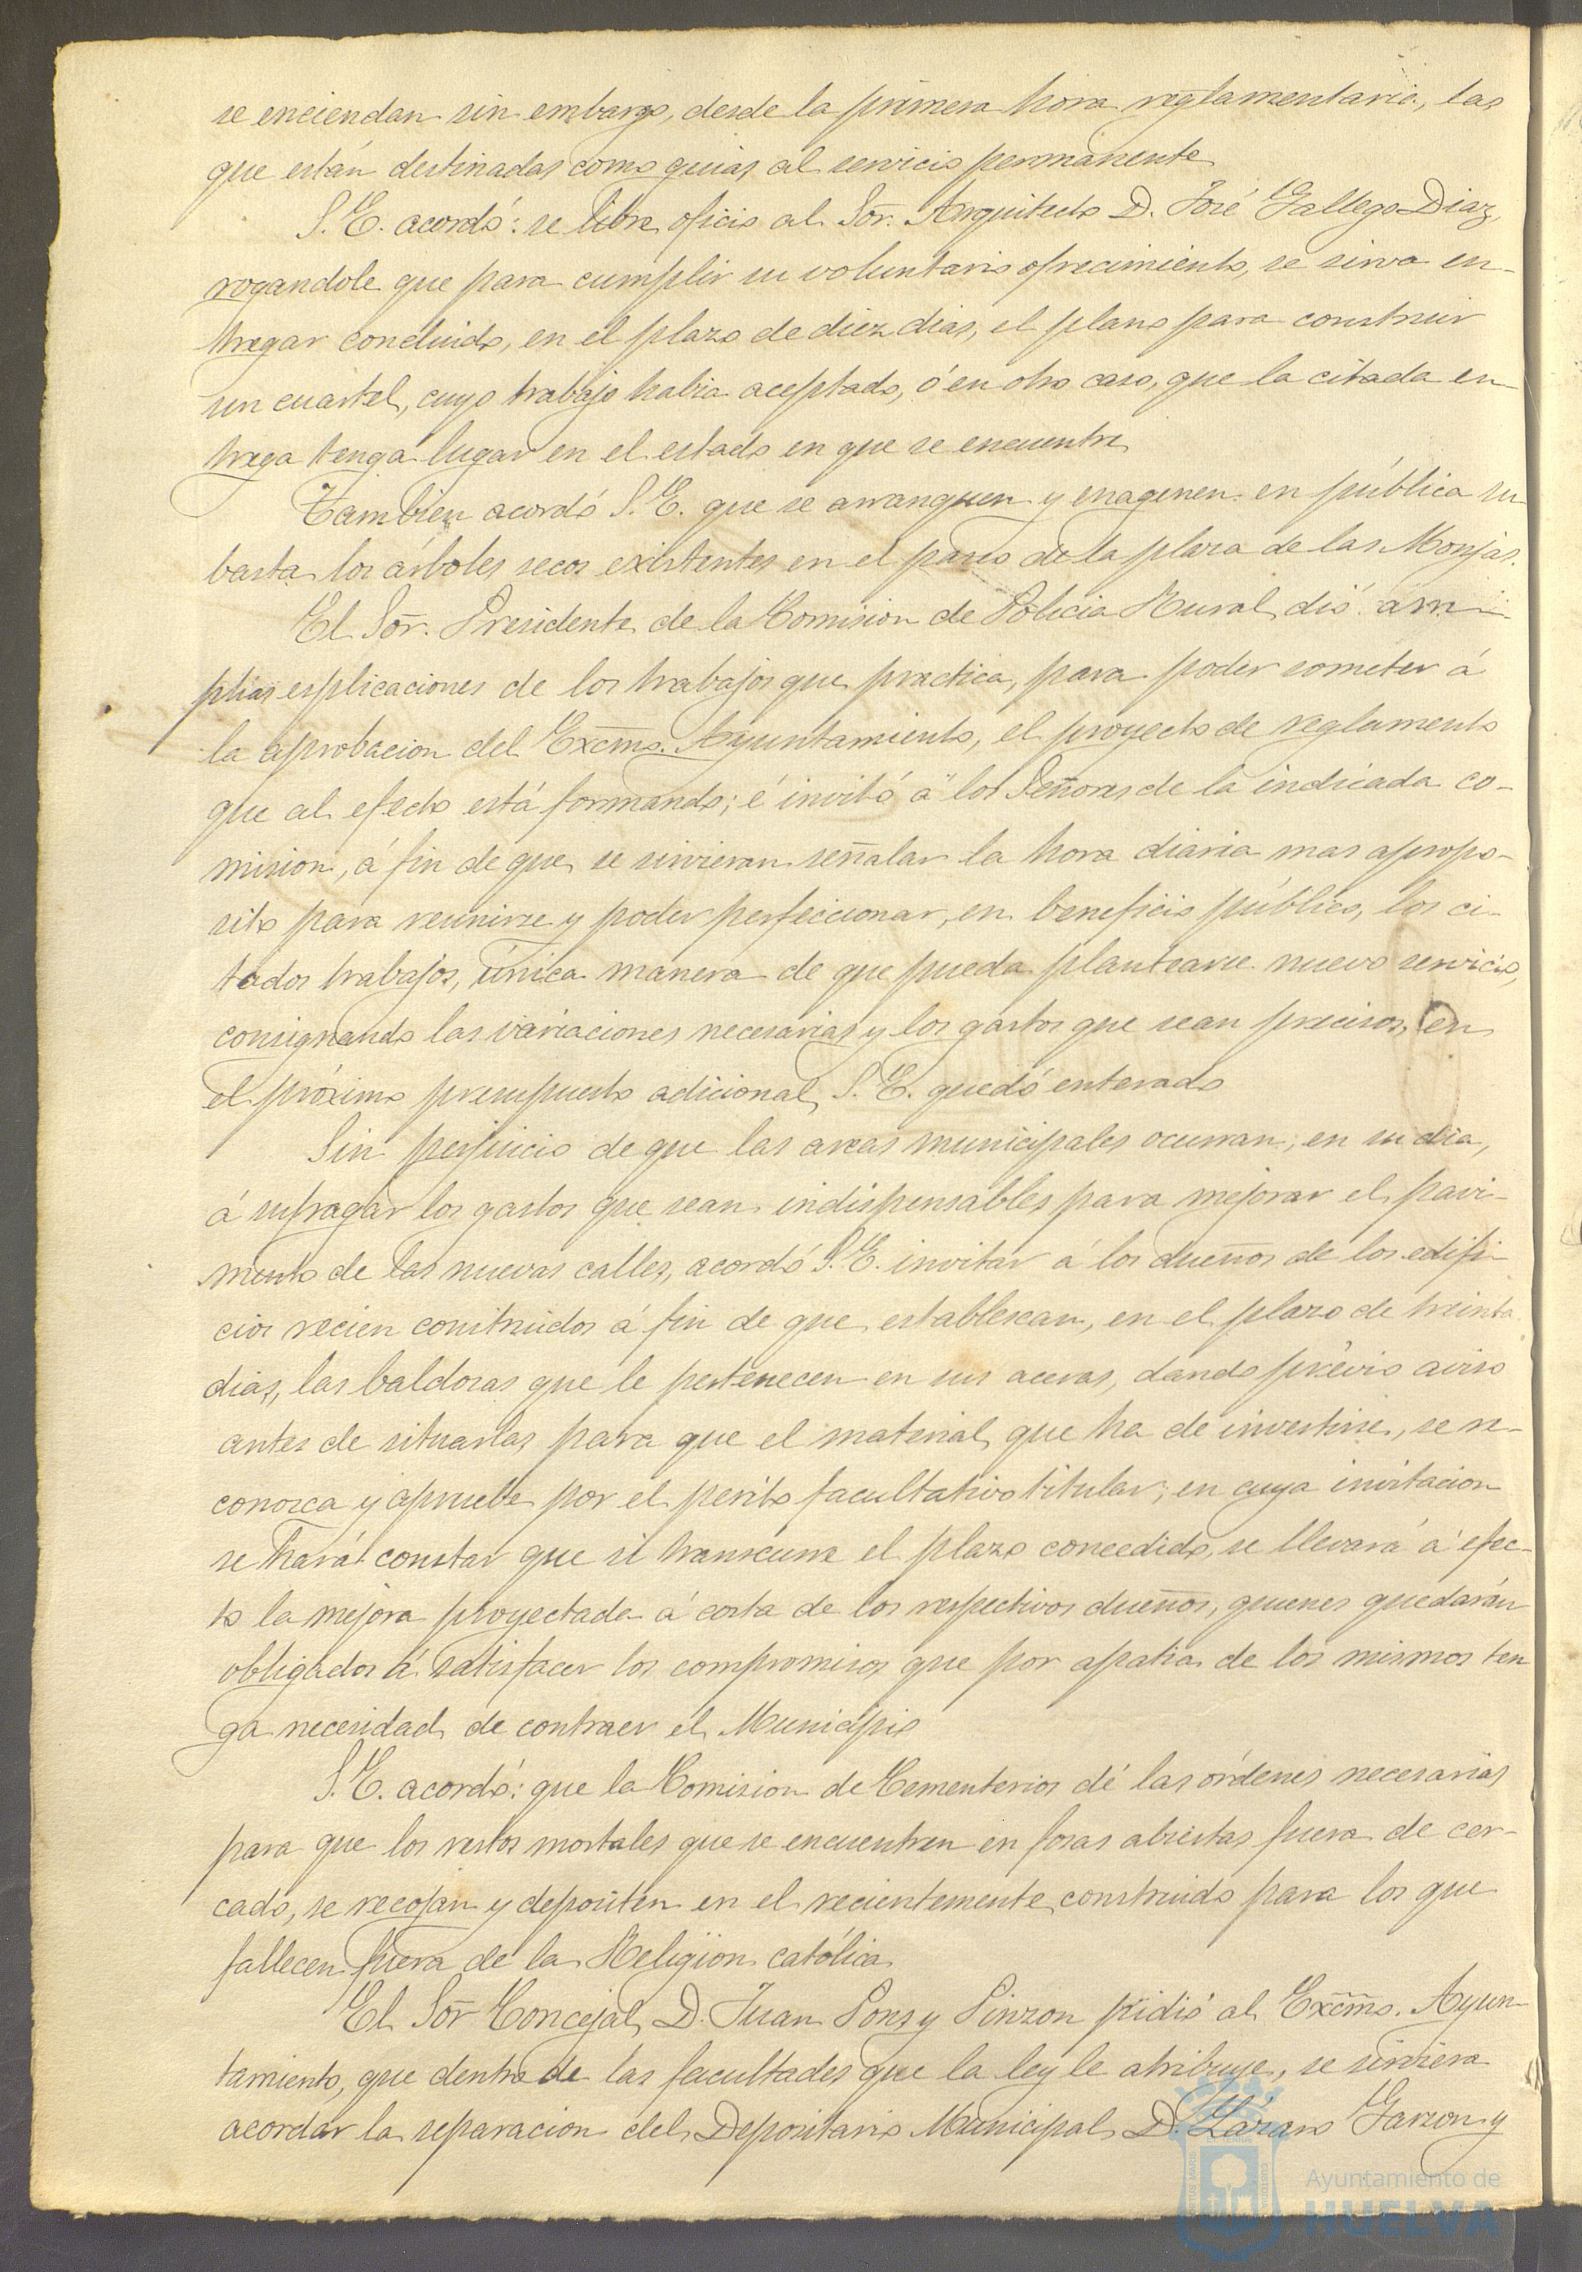 se enciendan sin embargo, desde la primera hora reglamentaria, las
que están destinadas como guias al servicio permanente
S. E. acordó: se libre oficio al Sor. Arquitecto D. José Gallego Diaz,
rogandole que para cumplir su voluntario ofrecimiento, se sirva en-
tregar concluido, en el plazo de diez dias, el plano para construir
un cuartel, cuyo trabajo habia aceptado, ó en otro caso, que la citada en-
trega tenga lugar en el estado en que se encuentre
Tambien acordó S. E. que se arranquen y enagenen en pública su-
basta los árboles secos existentes en el paseo de la plaza de las Monjas.
El Sor. Presidente de la Comision de Policia Rural dió am-
plias esplicaciones de los trabajos que practica, para poder someter á
la aprobacion del Excmo. Ayuntamiento, el proyecto de reglamento
que al efecto está formando; é invitó á los Señores de la indicada co-
mision, á fin de que se sirvieran señalar la hora diaria mas apropo-
sito para reunirse y poder perfeccionar, en beneficio público, los ci-
tados trabajos, única manera de que pueda plantearse nuevo servicio,
consignando las variaciones necesarias y los gastos que sean precisos, en
el próximo presupuesto adicional, S. E. quedó enterado
Sin perjuicio de que las arcas municipales ocurran, en su dia,
á sufragar los gastos que sean indispensables para mejorar el pavi-
mento de las nuevas calles, acordó S. E. invitar á los dueños de los edifi-
cios recien construidos á fin de que establescan, en el plazo de treinta
dias, las baldosas que le pertenecen en sus aceras, dando prévio aviso
antes de situarlas para que el material que ha de invertirse, se re-
conosca y apruebe por el perito facultativo titular; en cuya invitacion
se hará constar que si transcurre el plazo concedido, se llevará á efec-
to la mejora proyectada á costa de los respectivos dueños, quienes quedarán
obligados á satisfacer los compromisos que por apatia de los mismos ten
ga necesidad de contraer el Municipio
S. E. acordó: que la Comision de Cementerios dé las órdenes necesarias
para que los restos mortales que se encuentren en fosas abiertas fuera de cer-
cado, se recojan y depositen en el recientemente construido para los que
fallecen fuera de la Religion católica
El Sor Concejal D. Juan Pons y Pinzon pidió al Excmo. Ayun-
tamiento, que dentro de las facultades que la ley le atribuye, se sirviera
acordar la separacion del Depositario Municipal D. Lázaro Garzon y
Ayuntamiento de
HUELVA